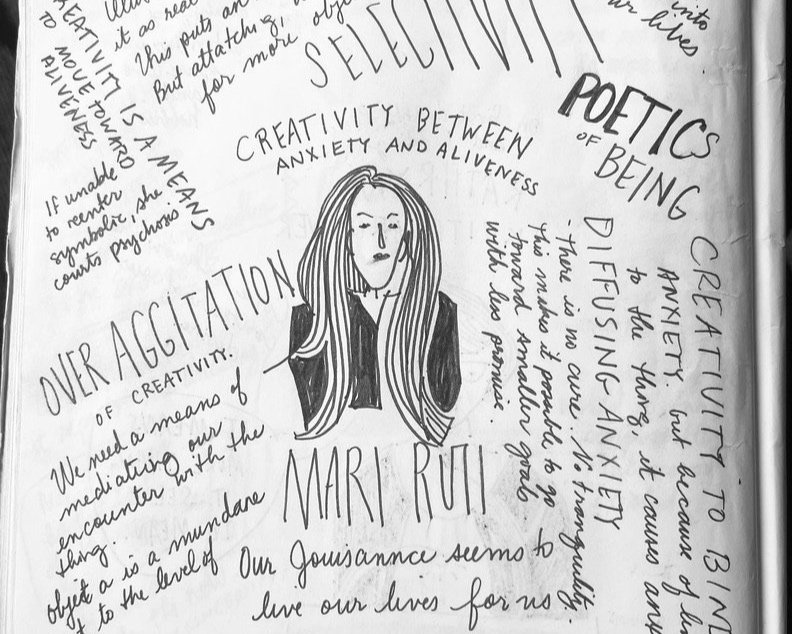 it as real
This puts an
But attatching,
for more obje
SELECTIVIT
into
ur lives.
REATIVITY IS A MEANS
TO MOVE TOWARD
ALIVENESS
If unable
to reenter
symbolic, she
courts psychosis
CREATIVITY BETWEEN
ANXIETY AND ALIVENESS
POETICS
OF BEING
OVER AGGITATION
OF CREATIVITY.
We need a means of
mediating our
encounter with the
thing.
objet a is a mundane
t to the level of
MARI RUTI
Our Jouisannce seems to
live our lives for us
DIFFUSING ANXIETY
- There is no cure. No tranquility.
This makes it possible to go
toward smaller goals
with less promise.
CREATIVITY TO BIND
ANXIETY. but because of
to the thing, it causes anx